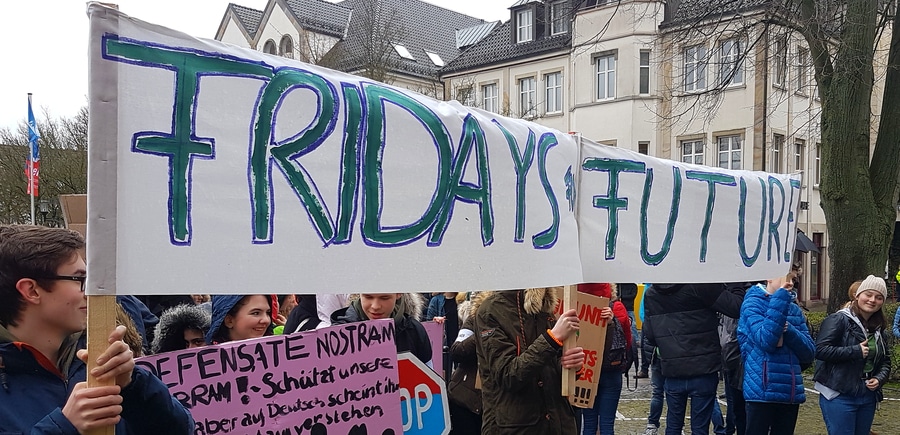 FRIDAYS
FUTURE
DEFENSATE NOSTRAM
RRAM! Schützt unsere
aber auf Deutsch scheint ihr
verstehen
OP